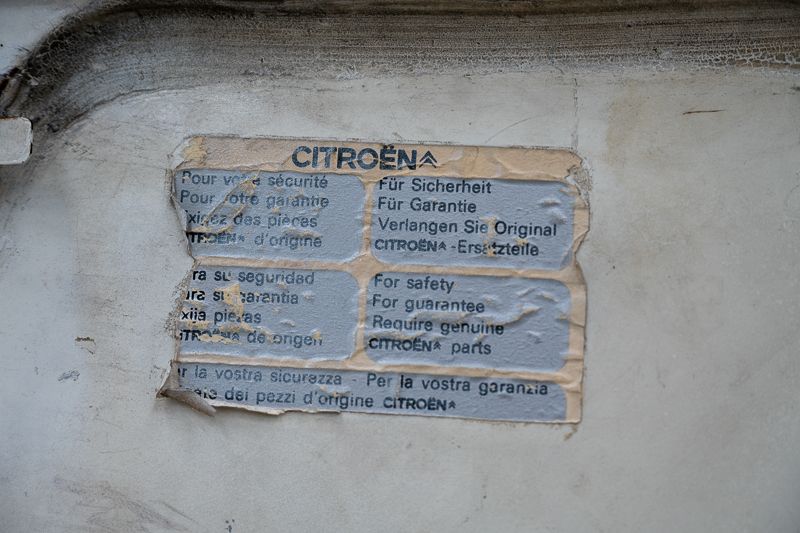 CITROËN
Pour votre sécurité
Pour votre garantie
Exigez des pièces
CITROËN d'origine
Für Sicherheit
Für Garantie
Verlangen Sie Original
CITROËN -Ersatzteile
ra su seguridad
ara su garantia
xija piezas
CITROËN de origen
For safety
For guarantee
Require genuine
CITROËN parts
er la vostra sicurezza - Per la vostra garanzia
dei pezzi d'origine CITROËN